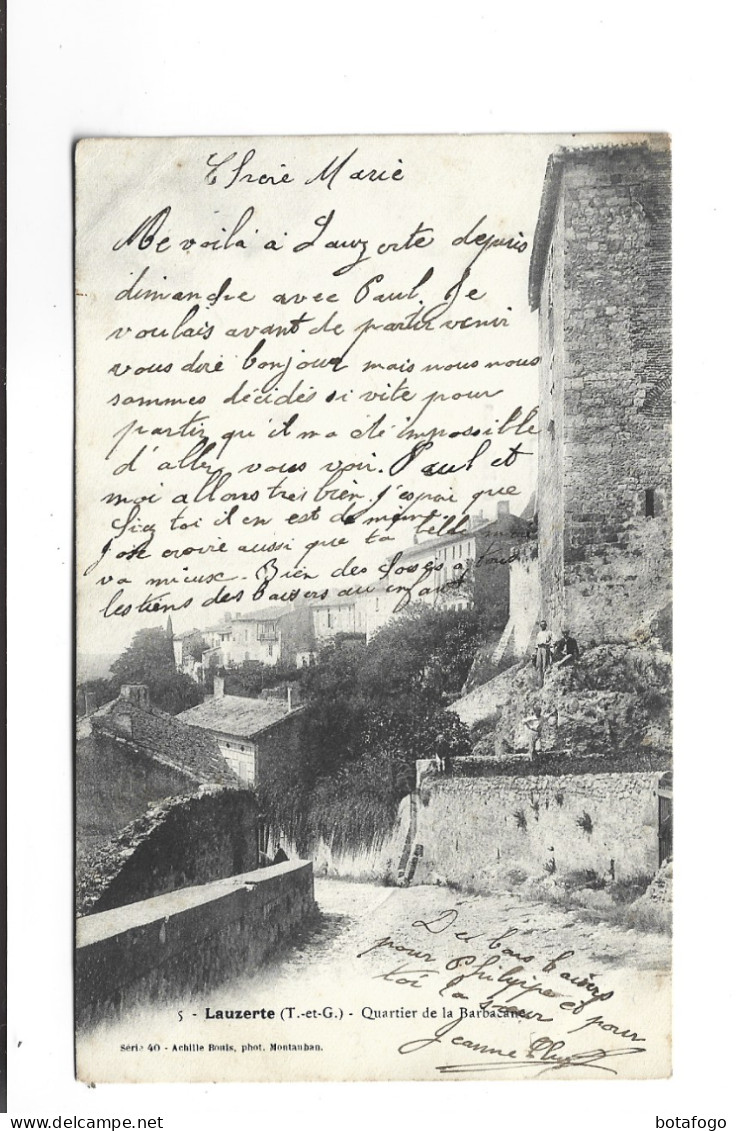 Chère Marie
Me voilà à Lauzerte depuis
dimandre avec Paul. Je
voulais avant de partir venir
vous dire bonjour mais nous nous
sommes décidés si vite pour
partir qu'il m'a été impossible
d'aller vous voir. Paul et
moi allons très bien. j'espère que
chez toi il en est de même
Jose croire aussi que ta belle mère
va mieux. Bien des choses à tous
les tiens des baisers au enfant
Des bons baisers
pour Philippe et pour
toi la sœur
Jeanne
5 - Lauzerte (T.-et-G.) - Quartier de la Barbacane
Série 40 - Achille Bouis, phot. Montauban.
Delcampe.net
botafogo